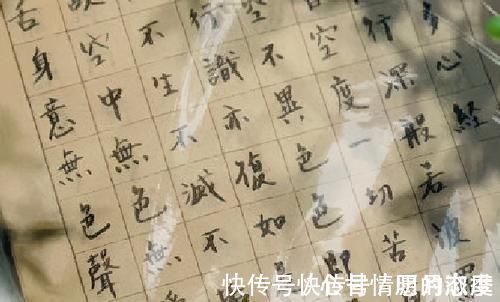 多心經
行深般若波
空度一切苦
空不異色色即
行識亦復如
不生不滅不
空中無色無
舌身意無色聲
快传号